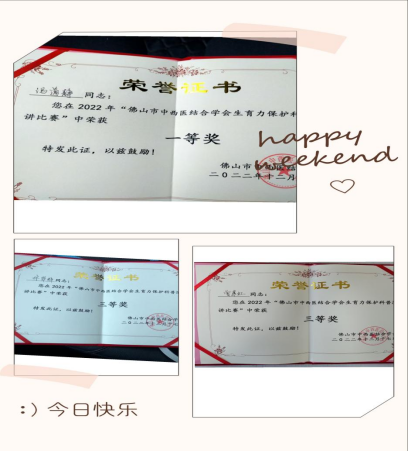 荣誉证书
同志：
您在2022年“佛山市中西医结合学会生育力保护科
讲比赛”中荣获
一等奖
特发此证，以兹鼓励！
佛山市
二〇二二年十二月
happy
weekend
荣誉证书
同志：
您在2022年“佛山市中西医结合学会生育力保护科普
讲比赛”中荣获
三等奖
特发此证，以兹鼓励！
佛山市中西医结合学
二〇二二年十二月
荣誉证书
同志：
您在2022年“佛山市中西医结合学会生育力保护科普
讲比赛”中荣获
三等奖
特发此证，以兹鼓励！
佛山市中西医结合学
二〇二二年十二月
:) 今日快乐